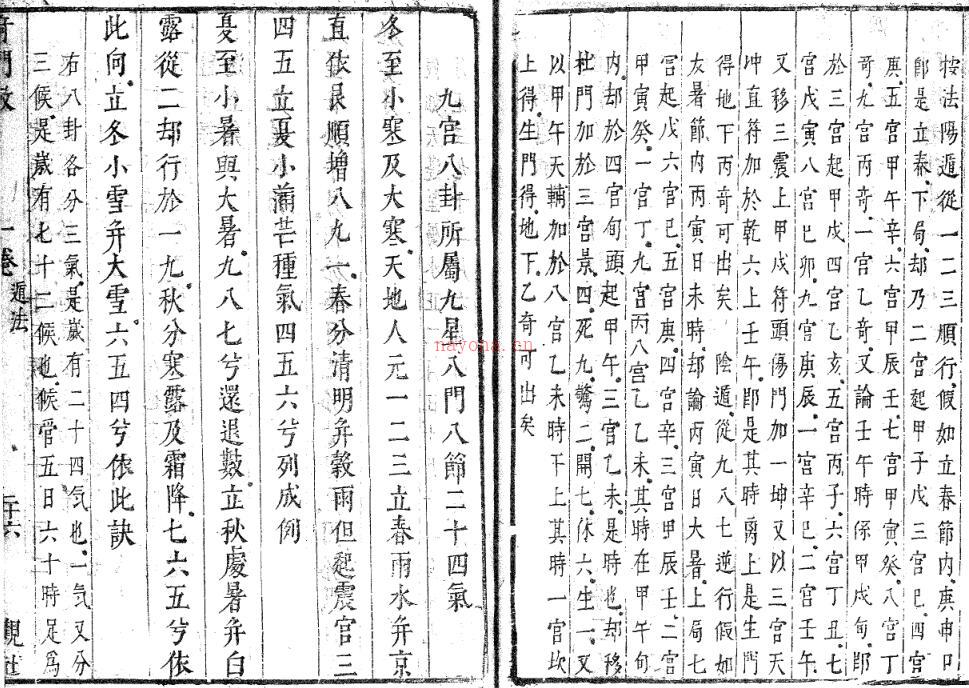 按法陽遁從一二三順行假如立春節内庚申日
即是立春下局却乃二宮起甲子戊三宮己四宮
庚五宮甲午辛六宮甲辰壬七宮甲寅癸八宮丁
奇九宮丙奇一宮乙奇又論壬午時係甲戌旬即
於三宮起甲戌四宮乙亥五宮丙子六宮丁丑七
宮戊寅八宮己卯九宮庚辰一宮辛巳二宮壬午
又移三震上甲戌符頭傷門加一坤又以三宮天
冲直符加於乾六上壬午即是其時离上是生門
得地下丙奇可出矣 陰遁從九八七逆行假如
大暑節内丙寅日未時却論丙寅日大暑上局七
宮起戊六宮己五宮庚四宮辛三宮甲辰壬二宮
甲寅癸一宮丁九宮丙八宮乙乙未其時在甲午旬
内却於四宮旬頭起甲午三宮乙未是時也却移
杜門加於三宮景四死九驚二開七休六生一又
以甲午天輔加於八宮乙未時下上其時一宮坎
上得生門得地下乙奇可出矣
九宮八卦所屬九星八門八節二十四氣
冬至小寒及大寒天地人元一二三立春雨水并京
直依艮順增八九一春分清明并穀雨但起震宮三
四五立夏小蒲芒種氣四五六兮列成例
夏至小暑與大暑九八七兮還退數立秋處暑并白
露從二却行於一九秋分寒露及霜降七六五兮依
此向立冬小雪并大雪六五四兮依此訣
右八卦各分三氣是歲有二十四気也一気又分
三候是歲有七十二候也候管五日六十時足為
奇門 一卷 遁法
nayona.cn